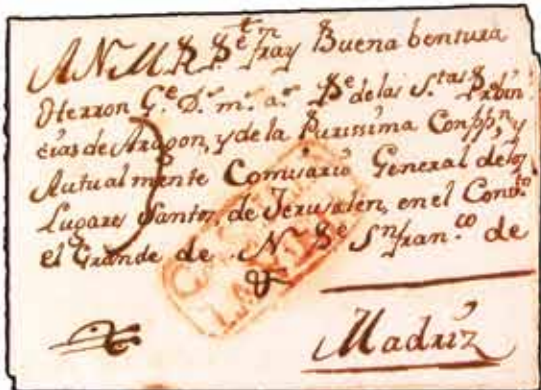 A N M R P. Fray Buena bentura
Herron G.e D.s m.s a.s P.e de las S.tas Probin
cias de Aragon, y de la Purissima Conpp.n, y
Autualmente Comisario General de los
Lugares Santos, de Jerusalen, en el Conv.to
el Grande de N. P.e S.n fran.co de
Madriz